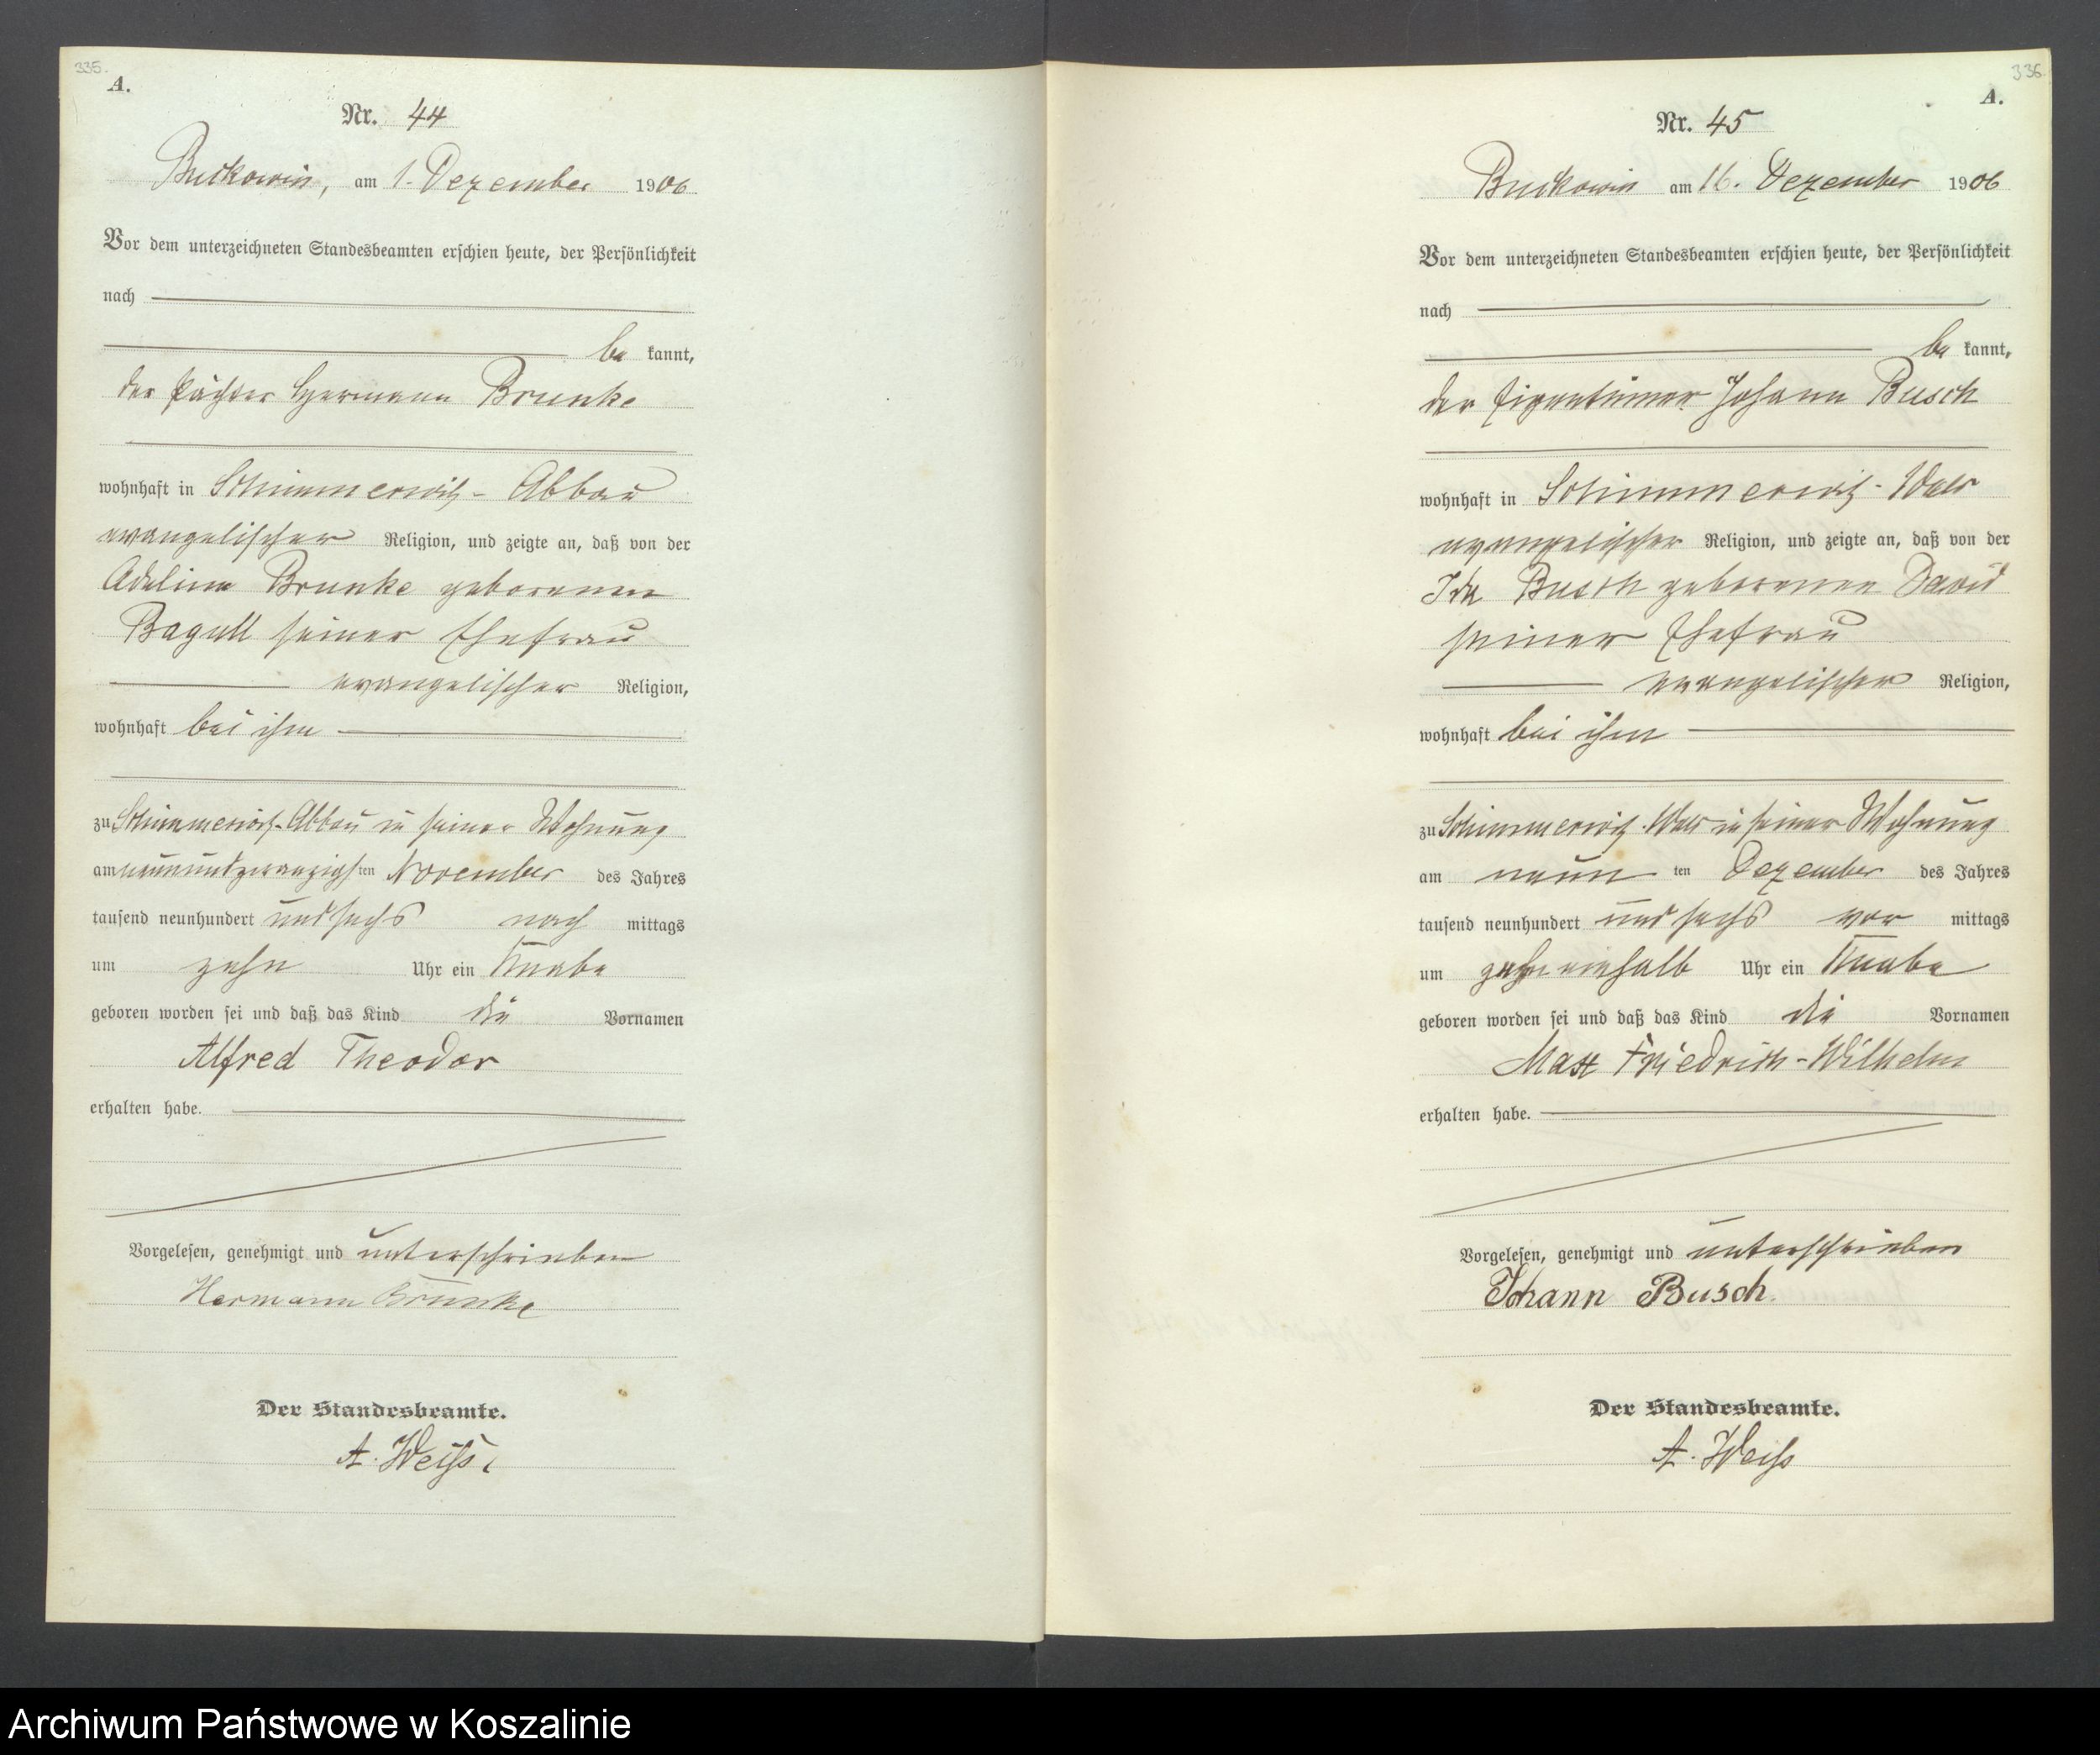 335.
A.
Nr. 44
Buckowin, am 1. Dezember 1906
Vor dem unterzeichneten Standesbeamten erschien heute, der Persönlichkeit
nach
be kannt,
der Pächter Hermann Brunke
wohnhaft in Schimmerwitz-Abbau
evangelischer Religion, und zeigte an, daß von der
Adeline Brunke geborenen
Bagull seiner Ehefrau
evangelischer Religion,
wohnhaft bei ihm
zu Schimmerwitz-Abbau in seiner Wohnung
am neunundzwanzigsten November des Jahres
tausend neunhundert und sechs nach mittags
um zehn Uhr ein Knabe
geboren worden sei und daß das Kind die Vornamen
Alfred Theodor
erhalten habe.
Vorgelesen, genehmigt und unterschrieben
Hermann Brunke
Der Standesbeamte.
A. Weiß
336.
A.
Nr. 45
Buckowin am 16. Dezember 1906
Vor dem unterzeichneten Standesbeamten erschien heute, der Persönlichkeit
nach
be kannt,
der Eigentümer Johann Busch
wohnhaft in Schimmerwitz-
evangelischer Religion, und zeigte an, daß von der
Ida Busch geborenen David
seiner Ehefrau
evangelischer Religion,
wohnhaft bei ihm
zu Schimmerwitz- in seiner Wohnung
am neunten Dezember des Jahres
tausend neunhundert und sechs vor mittags
um zehneinhalb Uhr ein Knabe
geboren worden sei und daß das Kind die Vornamen
Max Friedrich-Wilhelm
erhalten habe.
Vorgelesen, genehmigt und unterschrieben
Johann Busch.
Der Standesbeamte.
A. Weiß
Archiwum Państwowe w Koszalinie